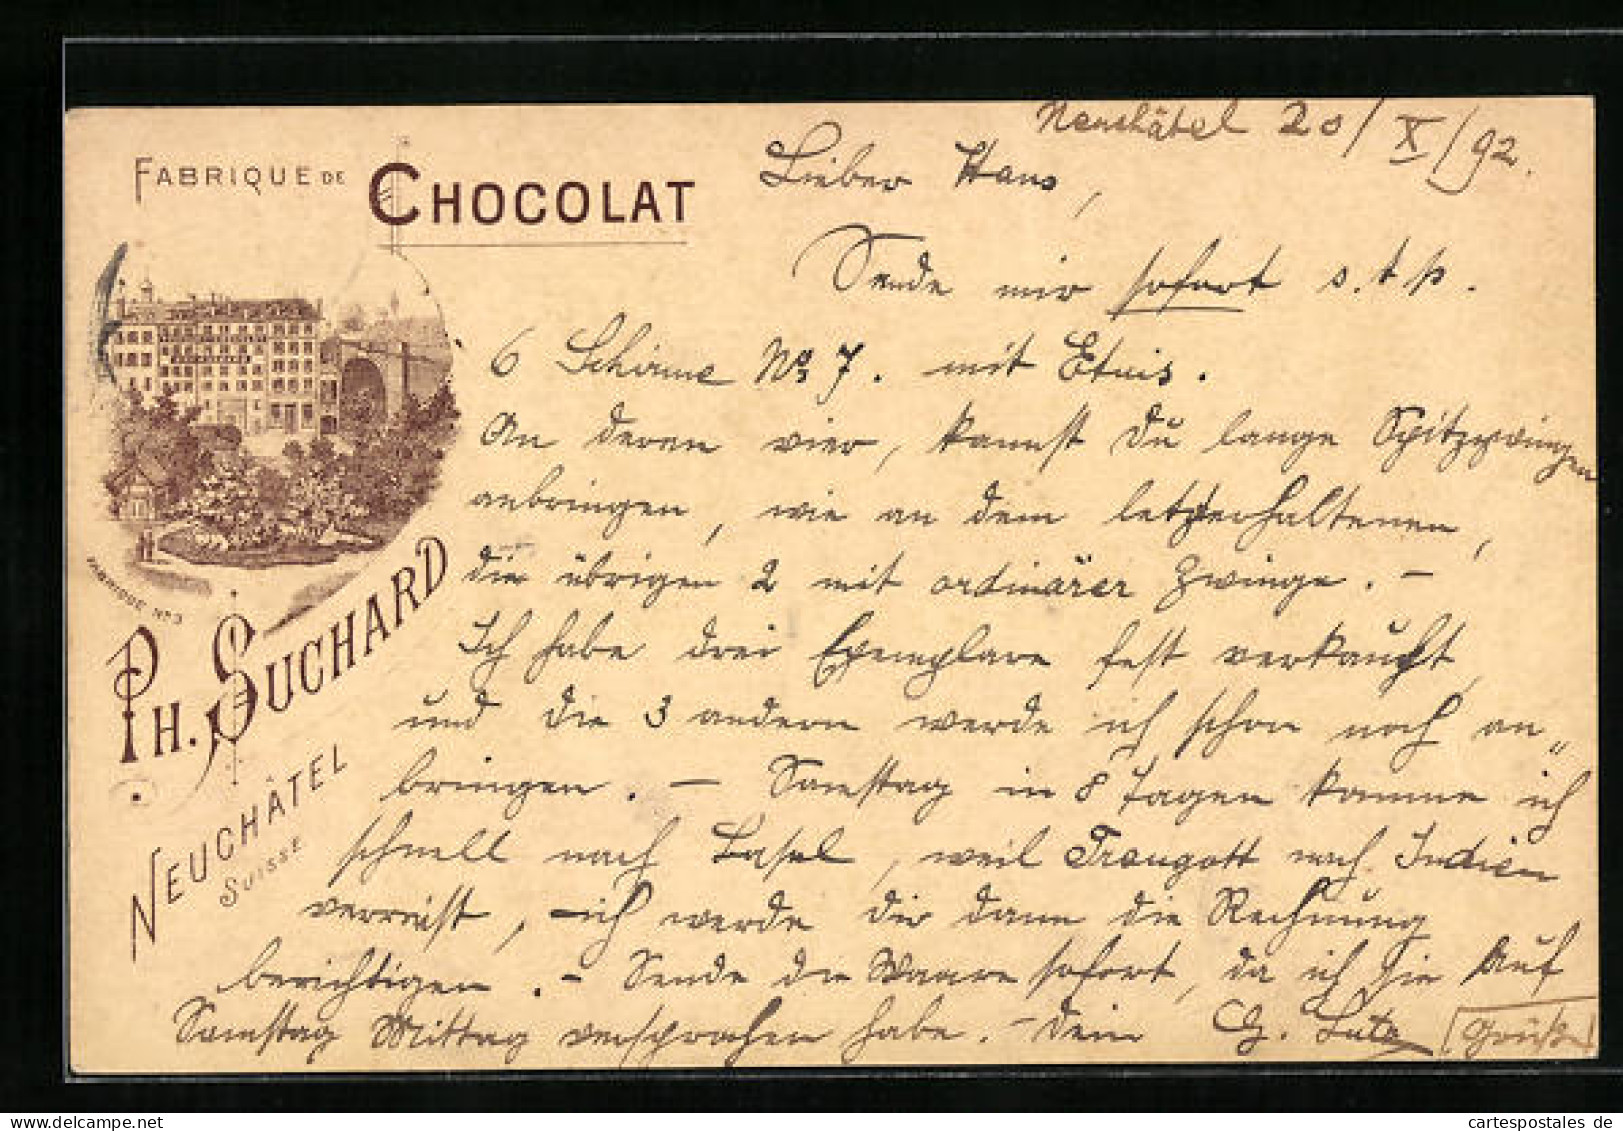 Neuchâtel 20/X/92.
FABRIQUE DE CHOCOLAT
Lieber Hans,
Sende mir sofort s.t.p.
6 Schirme No 7. mit Etuis.
An deren vier, kannst Du lange Spitzzwingen
anbringen, wie an dem letzterhaltenen,
die übrigen 2 mit ordinärer Zwinge. –
Ich habe drei Exemplare fest verkauft,
und die 3 andern werde ich schon noch an„
bringen. – Samstag in 8 Tagen komme ich
schnell nach Basel, weil Traugott nach Indien
verreist, – ich werde dir dann die Rechnung
berichtigen. – Sende die Waare sofort, da ich sie Auf
Samstag Mittag versprochen habe. – Dein G. Lutz [Grüße]
FABRIQUE No 3
PH. SUCHARD
NEUCHÂTEL
SUISSE
cartespostales de